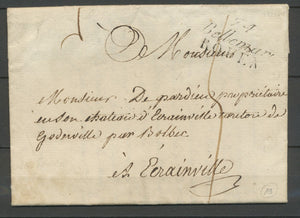 A Monsieur
ROUEN
Monsieur De pardieu propriétaire
en son chateau d'Ecrainville canton de
Goderville par Bolbec
à Ecrainville